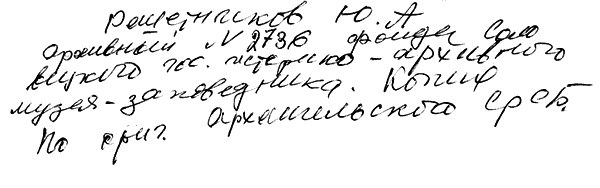 Решетников Ю. А
архивный N 2736 фонды Соло
вецкого гос. историко-архивного
музея-заповедника. Копия
по ориг. Архангельской